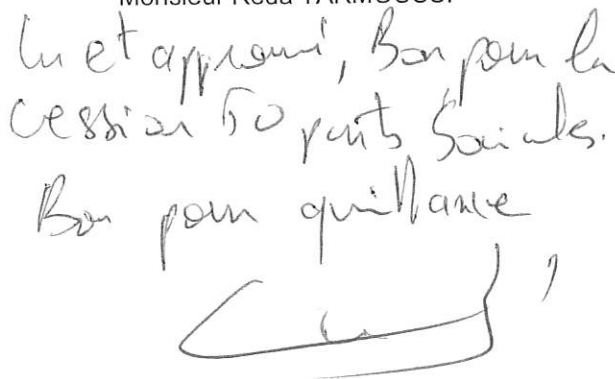 Monsieur Réda YARMOUSSI
Lu et approuvé, Bon pour la
cession 50 parts Sociales.
Bon pour quittance